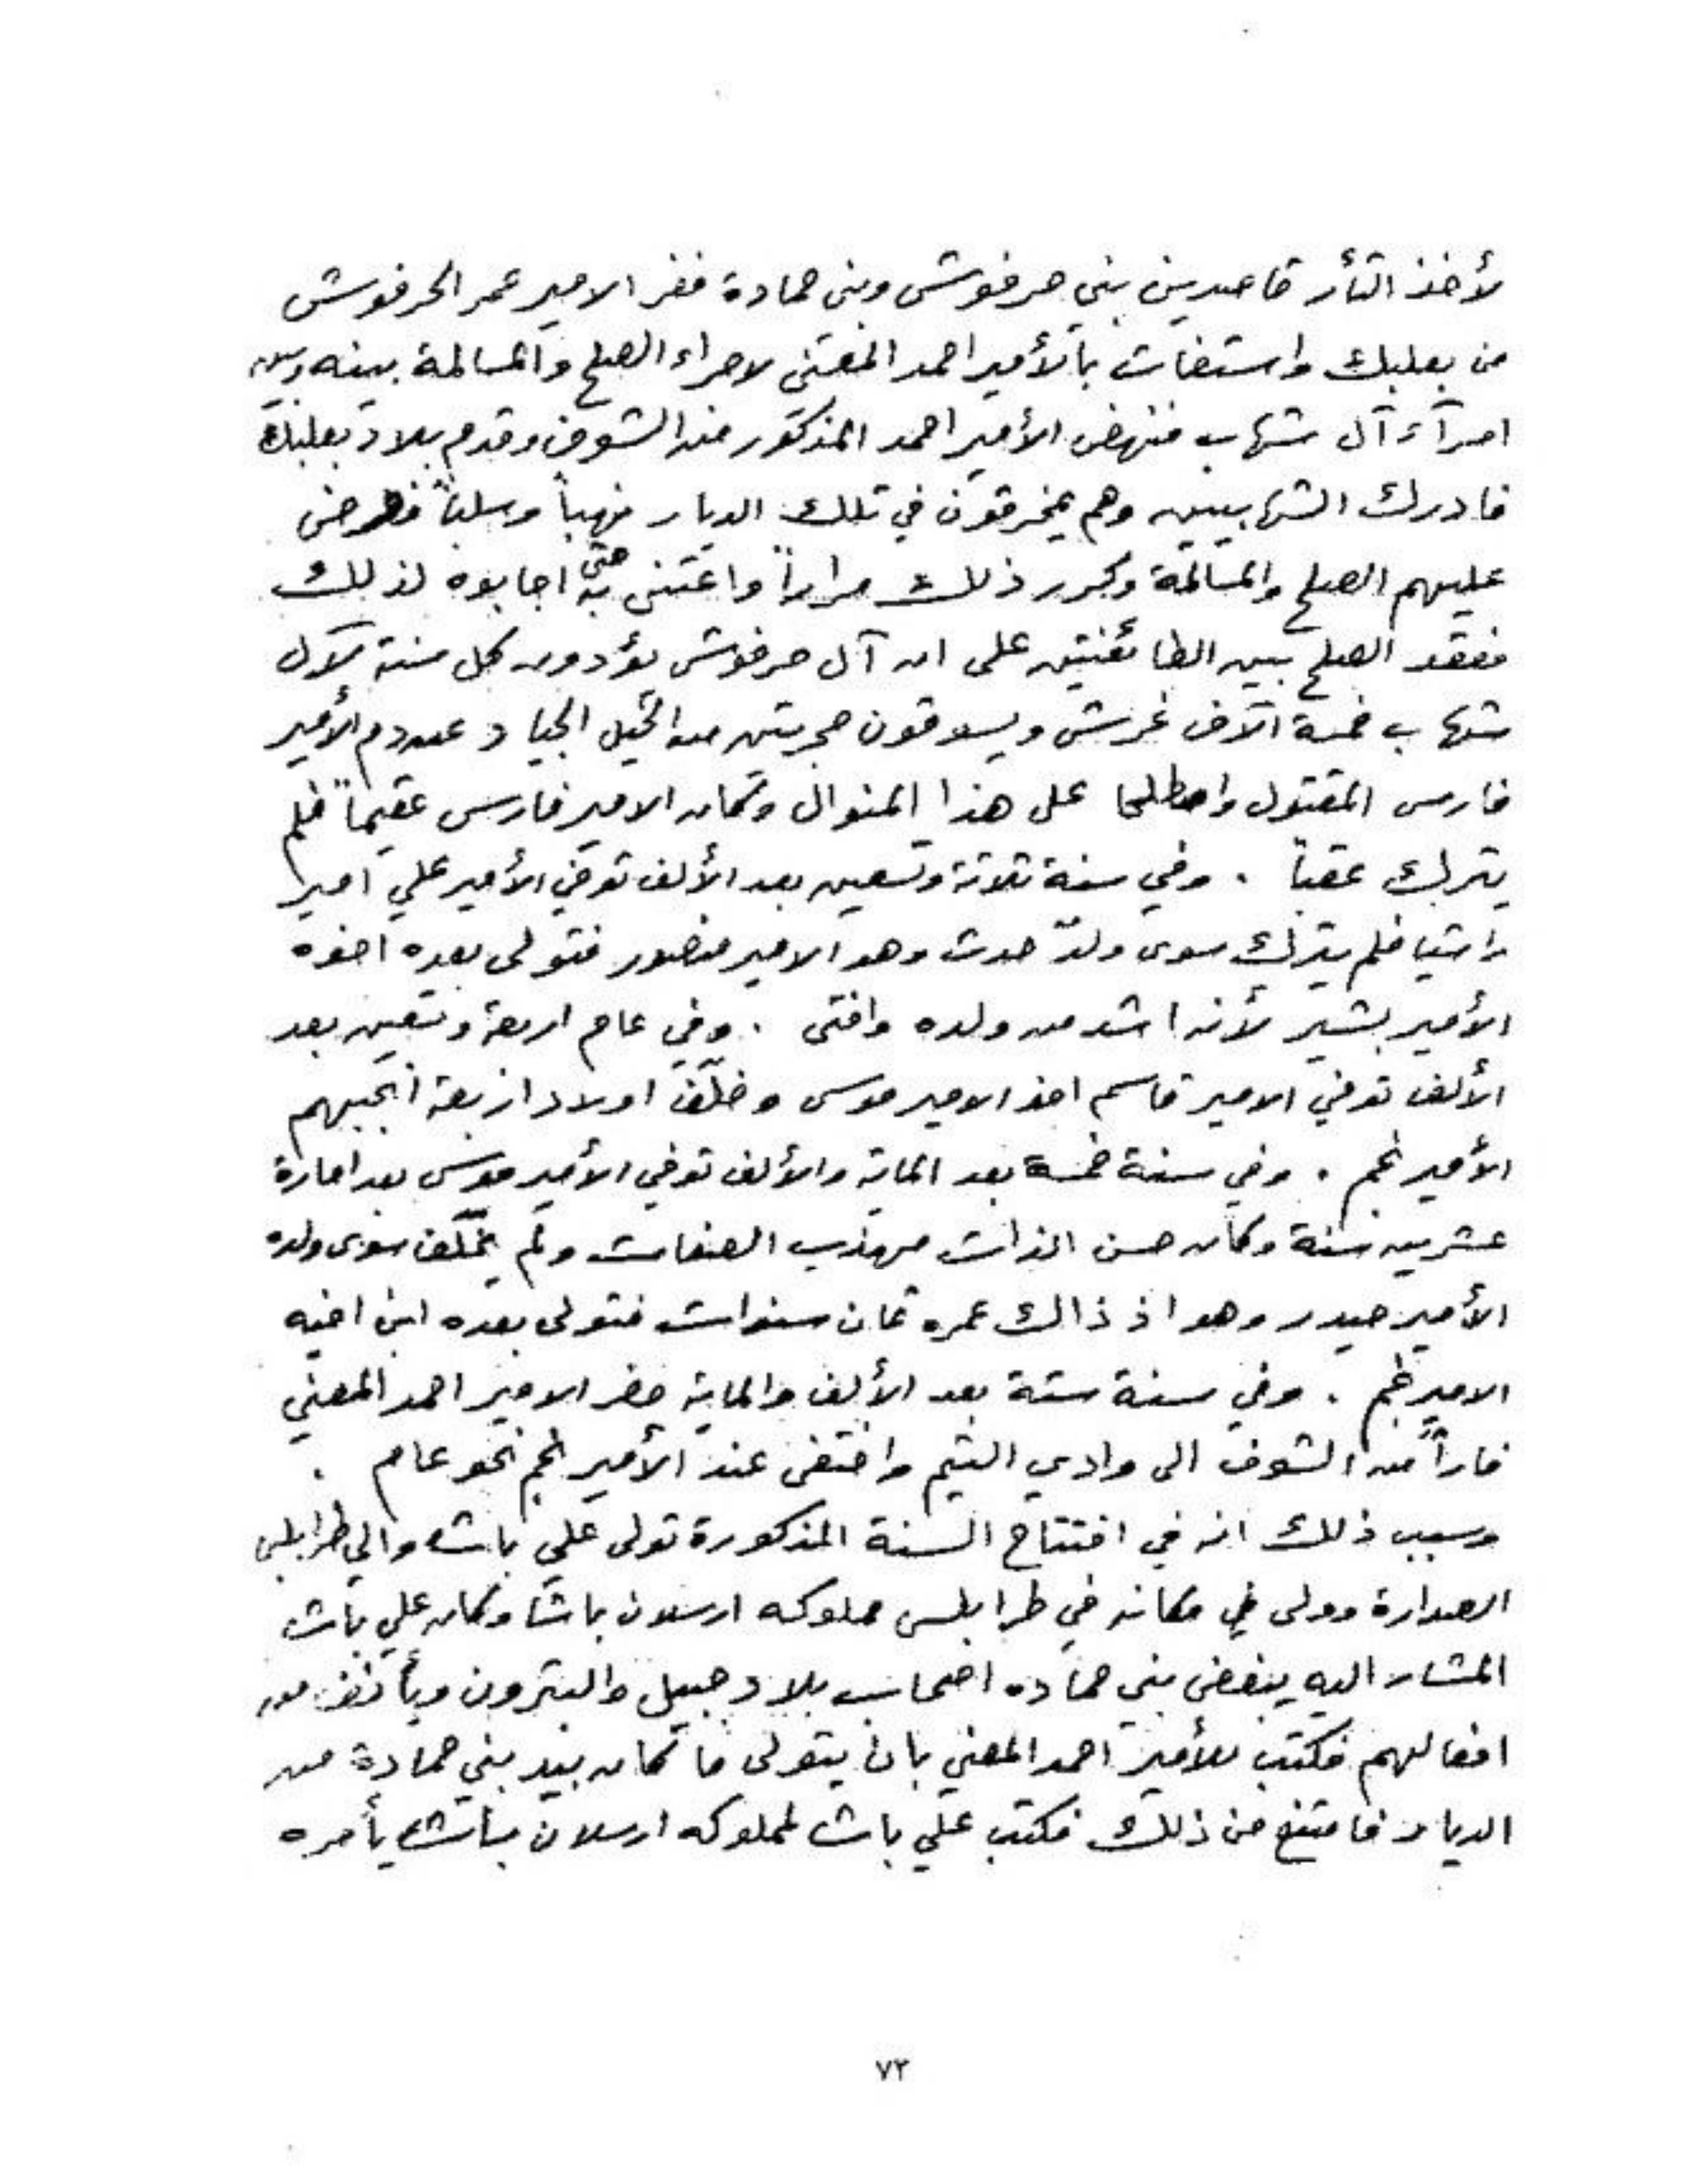 لأخذ الثأر قاصدين بني حرفوش وبني حمادة ففر الامير عمر الحرفوش
من بعلبك واستغاث بالأمير احمد المعني لاجراء الصلح والمسالمة بينه وبين
امرآء آل شهاب فنهض الأمير احمد المذكور من الشوف وقدم بلاد بعلبك
فادرك الشهابيين وهم يخرقون في تلك الديار نهباً وسلباً فعرض
عليهم الصلح والمسالمة وكرر ذلك مراراً واعتنى به حتى اجابوه لذلك
فعقد الصلح بين الطائفتين على ان آل حرفوش يؤدون كل سنة لآل
شهاب خمسة آلاف غرش ويسوقون حجرتين من الخيل الجياد عن دم الأمير
فارس المقتول واصطلحا على هذا المنوال وكان الامير فارس عقيماً فلم
يترك عقباً . وفي سنة ثلاثة وتسعين بعد الألف توفي الأمير علي امير
راشيا فلم يترك سوى ولدٌ حدث وهو الامير منصور فتولى بعده اخوه
الأمير بشير لأنه اشد من ولده وافتى . وفي عام اربعة وتسعين بعد
الألف توفي الامير قاسم اخو الامير موسى وخلّف اولاد اربعة انجبهم
الأمير نجم . وفي سنة خمسة بعد الماية والألف توفي الأمير موسى بعد امارة
عشرين سنة وكان حسن الذات مهذب الصفات ولم يخلّف سوى ولده
الأمير حيدر وهو اذ ذاك عمره ثمان سنوات فتولى بعده ابن اخيه
الامير نجم . وفي سنة ستة بعد الألف والماية حضر الامير احمد المعني
فاراً من الشوف الى وادي التيم واختفى عند الأمير نجم نحو عام .
وسبب ذلك انه في افتتاح السنة المذكورة تولى علي باشا والي طرابلس
الصدارة وولى في مكانه في طرابلس مملوكه ارسلان باشا وكان علي باشا
المشار اليه يبغض بني حماده اصحاب بلاد جبيل والبترون ويأنف من
افعالهم فكتب للأمير احمد المعني بان يتولى ما كان بيد بني حمادة من
الديار فامتنع من ذلك فكتب علي باشا لمملوكه ارسلان باشا يأمره
٧٣